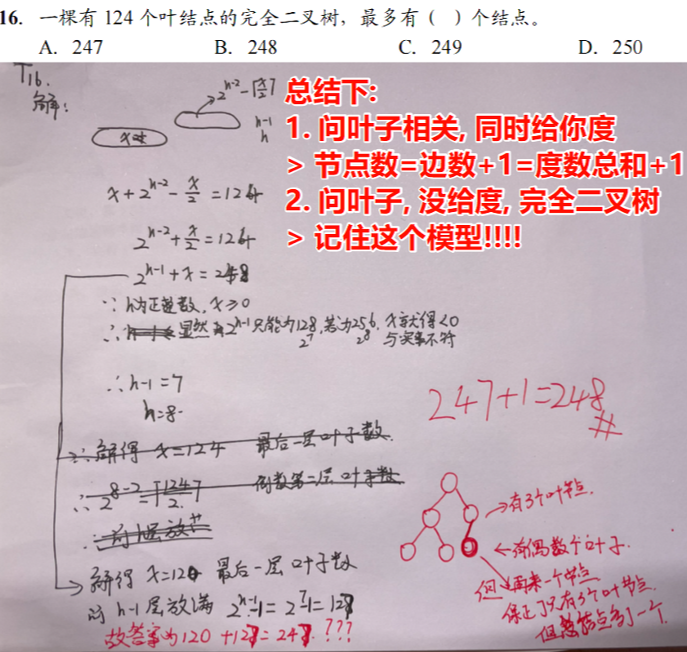 16. 一棵有 124 个叶结点的完全二叉树，最多有（ ）个结点。
A. 247 B. 248 C. 249 D. 250
T16.
解:
2^{h-2} - ⌈x/2⌉
h-1
h
总结下:
1. 问叶子相关, 同时给你度
> 节点数=边数+1=度数总和+1
2. 问叶子, 没给度, 完全二叉树
> 记住这个模型!!!!
x + 2^{h-2} - x/2 = 124
2^{h-2} + x/2 = 124
2^{h-1} + x = 248
∵ h为正整数, x≥0
∴ 显然 2^{h-1} 只能为128, 若为256, x求得<0
2^7 2^8 与实事不符
∴ h-1=7
h=8.
247+1=248
∴ 解得 x=124 最后一层叶子数.
∴ 2^{8-2} - ⌈124/2⌉ 倒数第二层叶子数
解得 x=120 最后一层叶子数
前 h-1 层放满 2^{h-1}-1 = 2^7-1 = 127
故答案为 120+127=247. ???
→有3个叶节点.
←有偶数个叶子.
但再来一个结点
保证了只有3个叶节点.
但总结点多了一个.